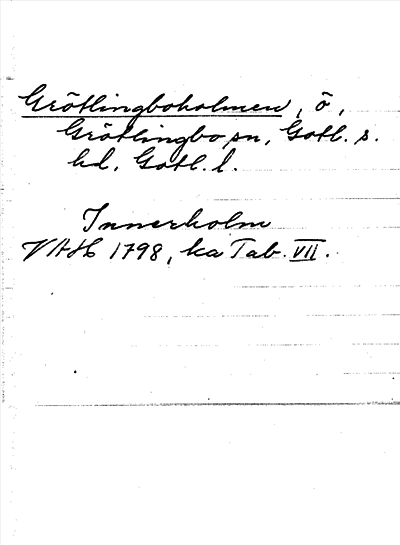 Grötlingboholmen, ö,
Grötlingbo sn, Gotl. s.
hd, Gotl. l.
Innerholm
VAH 1798, ka Tab. VII.